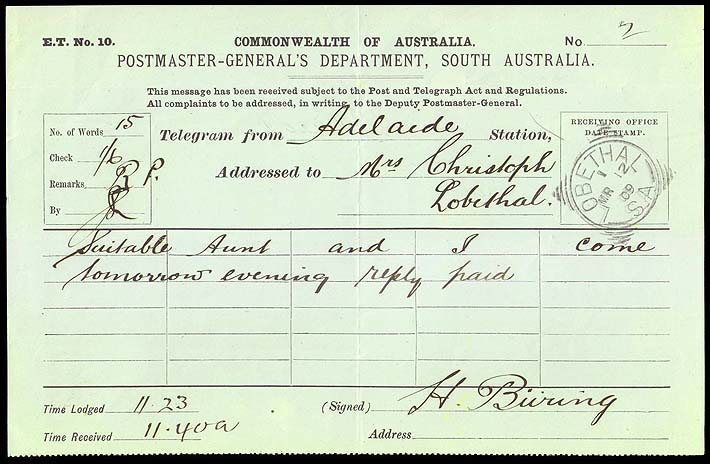 E.T. No. 10. COMMONWEALTH OF AUSTRALIA. No. 2
POSTMASTER-GENERAL'S DEPARTMENT, SOUTH AUSTRALIA.
This message has been received subject to the Post and Telegraph Act and Regulations.
All complaints to be addressed, in writing, to the Deputy Postmaster-General.
No. of Words 15
Check 1/6
Remarks R P.
By
Telegram from Adelaide Station,
Addressed to Mrs Christoph
Lobethal.
RECEIVING OFFICE
DATE STAMP.
LOBETHAL
1 12
MR 09
S.A
Suitable Aunt and I come
tomorrow evening reply paid
Time Lodged 11.23
Time Received 11.40a
(Signed) H. Büring
Address